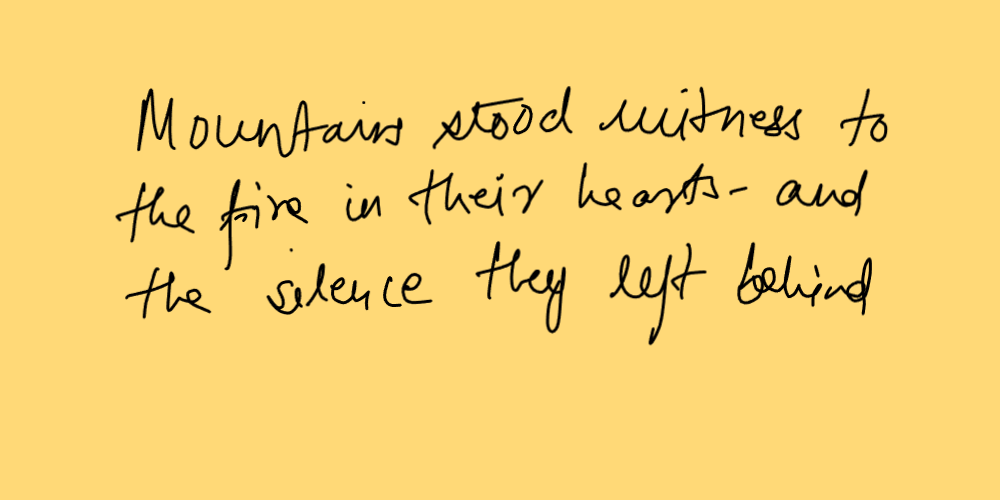 Mountains stood witness to
the fire in their hearts- and
the silence they left behind